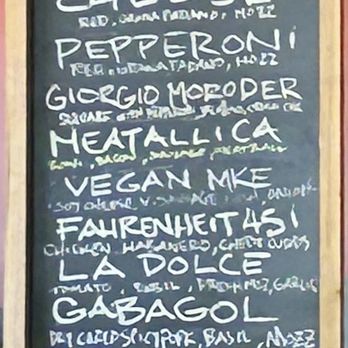 CHEESE
RED, GRANA PADANO, MOZZ
PEPPERONI
RED, GRANA PADANO, MOZZ
GIORGIO MORODER
SQUARE
MEATALLICA
RONI, BACON, SAUSAGE, MEATBALL
VEGAN MKE
SOY CHEESE, V. SAUSAGE
FAHRENHEIT 451
CHICKEN, HABANERO, CHEESE CURDS
LA DOLCE
TOMATO, BASIL, FRESH MOZ, GARLIC
GABAGOL
DRY CURED SPICY PORK, BASIL, MOZZ